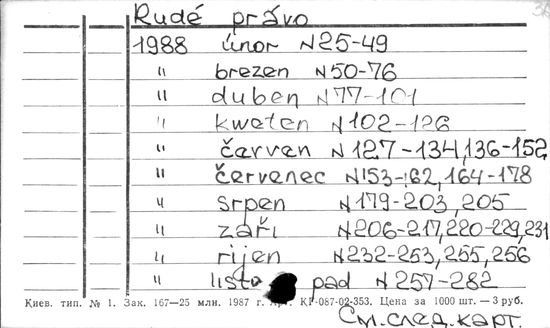 Rudé právo
1988 únor N25-49
" brezen N50-76
" duben N77-101
" kweten N102-126
" červen N127-134,136-152
" červenec N153-162,164-178
" srpen N179-203,205
" září N206-217,220-229,231
" rijen N232-253,255,256
" listo pad N257-282
Киев. тип. № 1. Зак. 167—25 млн. 1987 г. КГ-087-02-353. Цена за 1000 шт. — 3 руб.
См. след. карт.